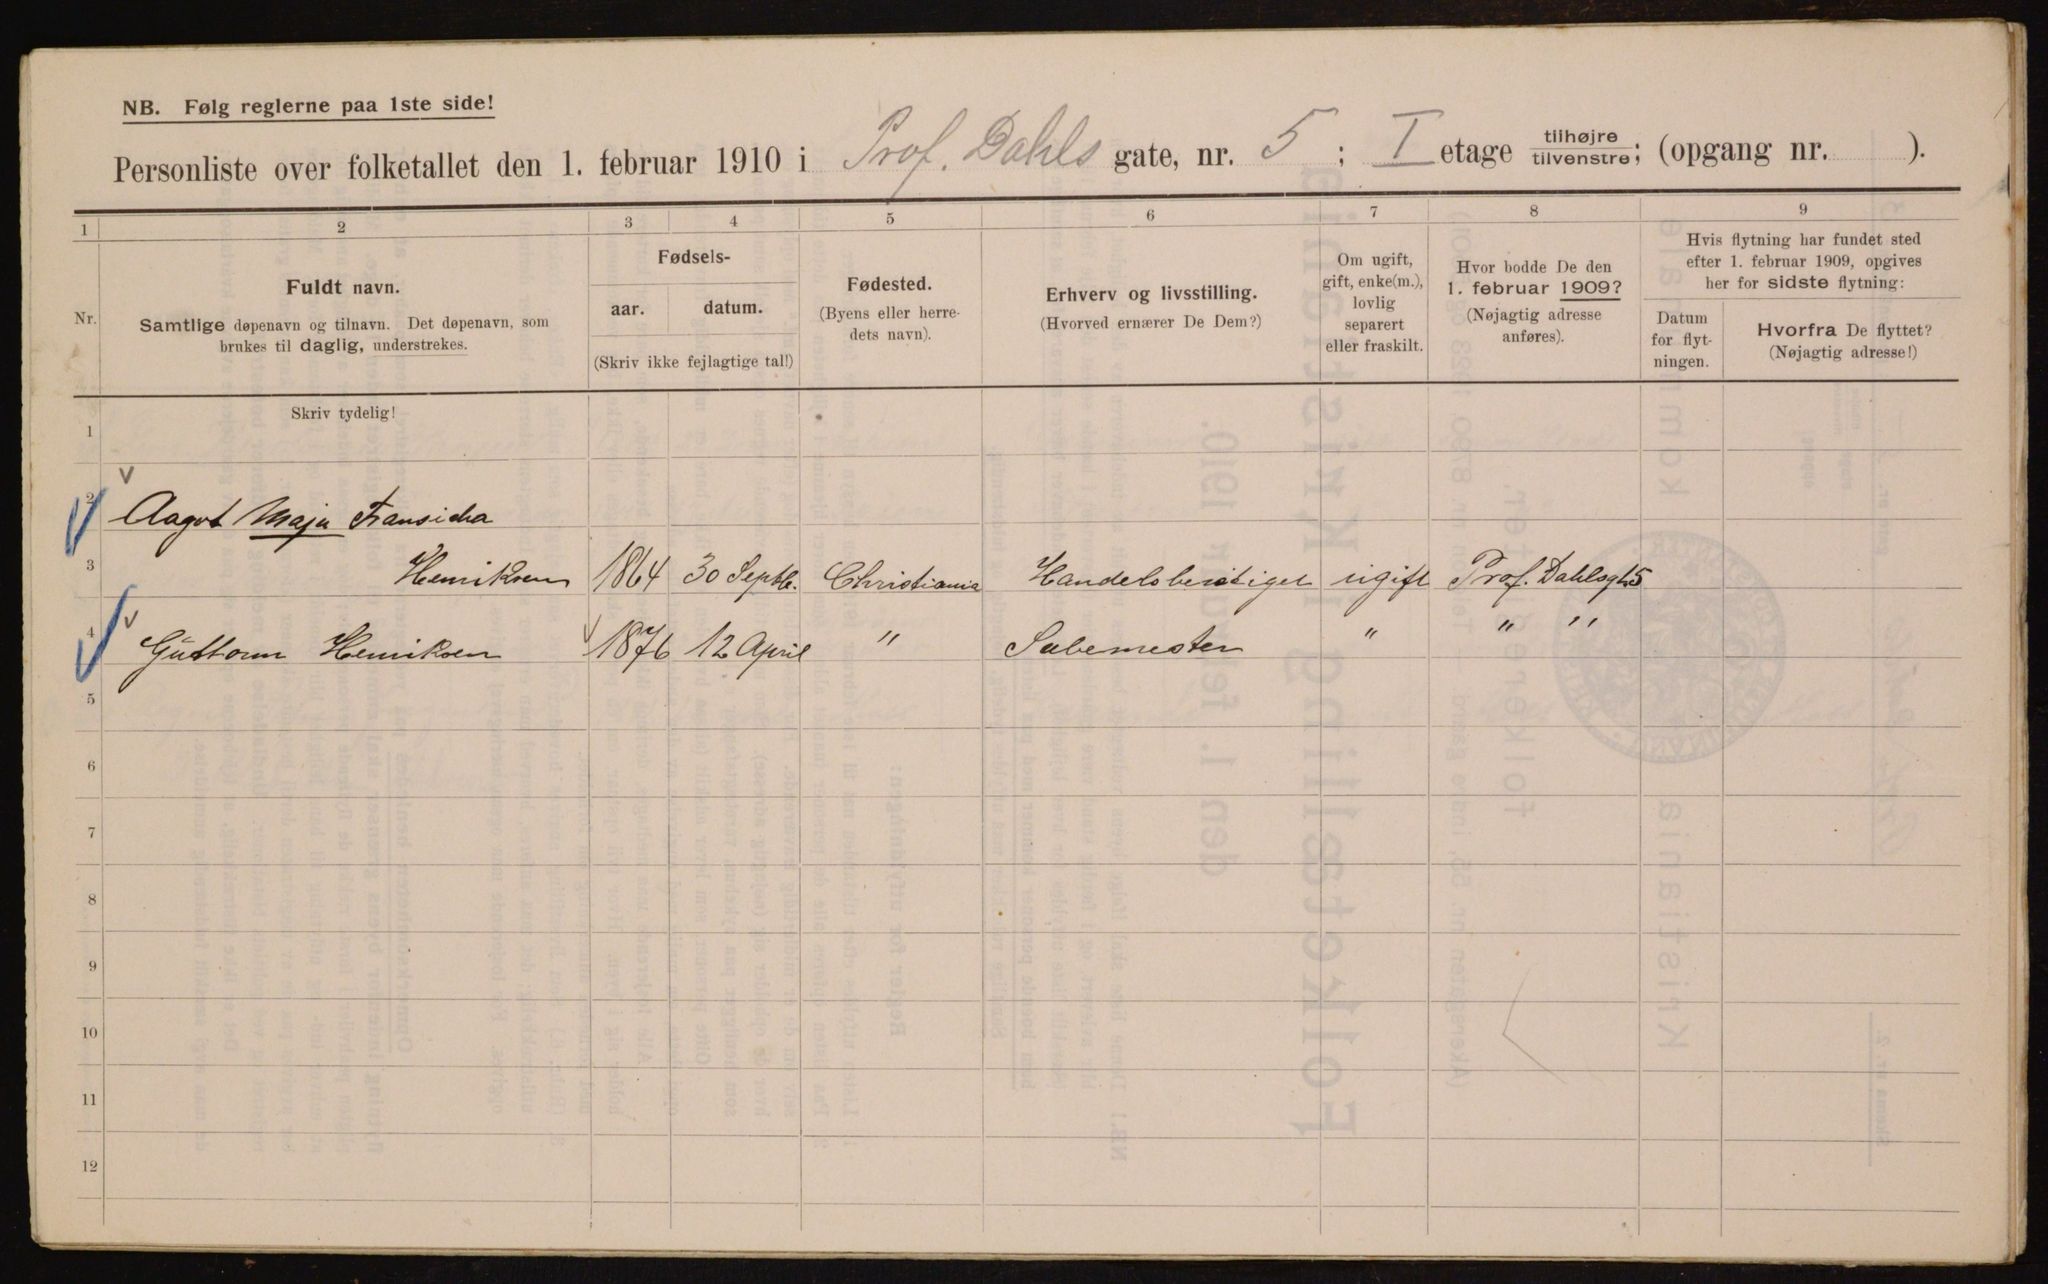 NB. Følg reglerne paa 1ste side!
Personliste over folketallet den 1. februar 1910 i Prof. Dahls gate, nr. 5 ; I etage tilhøjre/tilvenstre; (opgang nr. ).
1 2 3 4 5 6 7 8 9
Nr.
Fuldt navn.
Samtlige døpenavn og tilnavn. Det døpenavn, som
brukes til daglig, understrekes.
Fødsels-
aar. datum.
(Skriv ikke fejlagtige tal!)
Fødested.
(Byens eller herre-
dets navn).
Erhverv og livsstilling.
(Hvorved ernærer De Dem?)
Om ugift,
gift, enke(m.),
lovlig
separert
eller fraskilt.
Hvor bodde De den
1. februar 1909?
(Nøjagtig adresse
anføres).
Hvis flytning har fundet sted
efter 1. februar 1909, opgives
her for sidste flytning:
Datum
for flyt-
ningen.
Hvorfra De flyttet?
(Nøjagtig adresse!)
Skriv tydelig!
1
2 Aagot Maja
3 Henriksen 1864 30 Septb. Christiania ugift Prof. Dahlsgt. 5
4 Guttorm Henriksen 1876 12 April " " " "
5
6
7
8
9
10
11
12